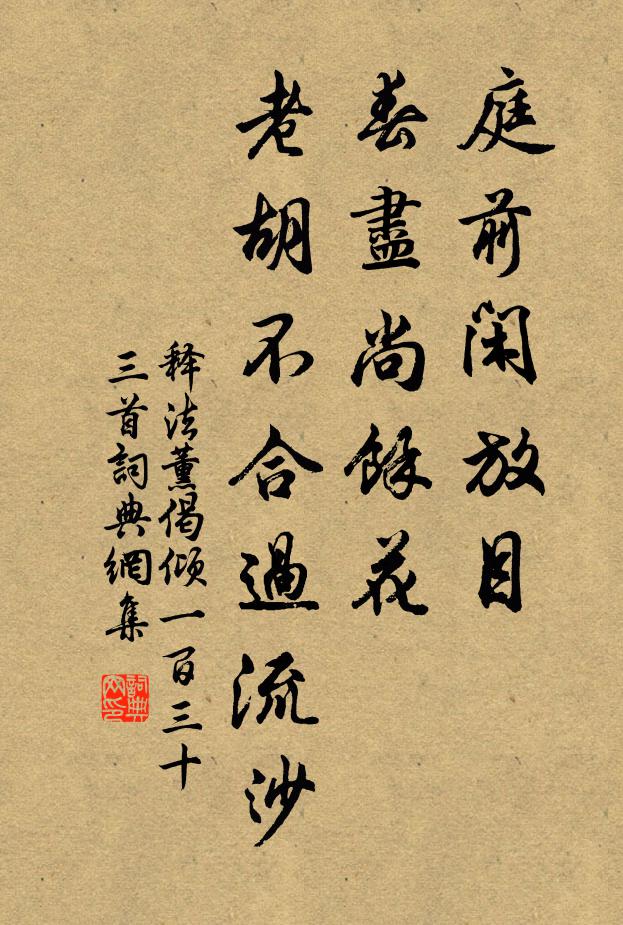 庭前閑放目
春盡尚餘花
老胡不合過流沙
释法薰偈倾一百三十
三首詞典網集
詞典
网印